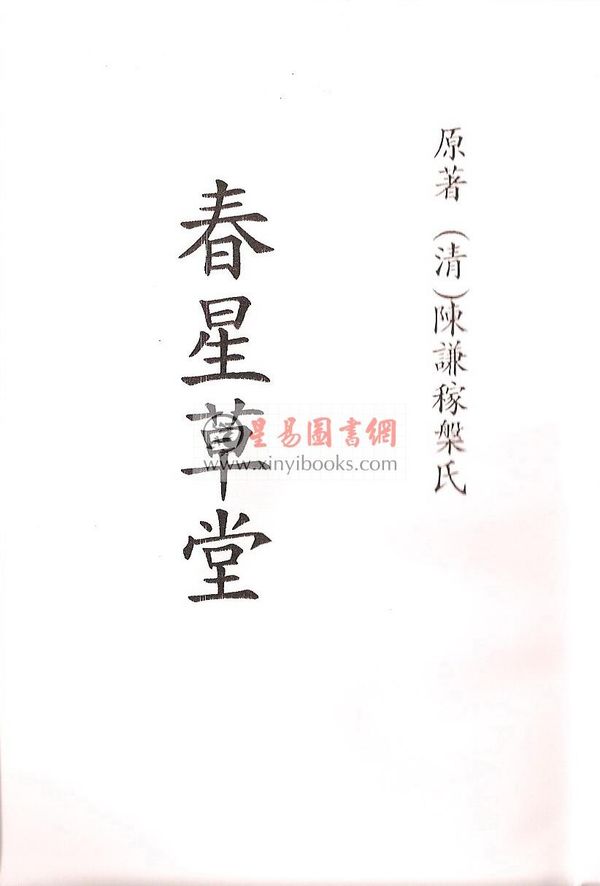 原著（清）陳謙稼槃氏
春星草堂
星易圖書網
www.xinyibooks.com